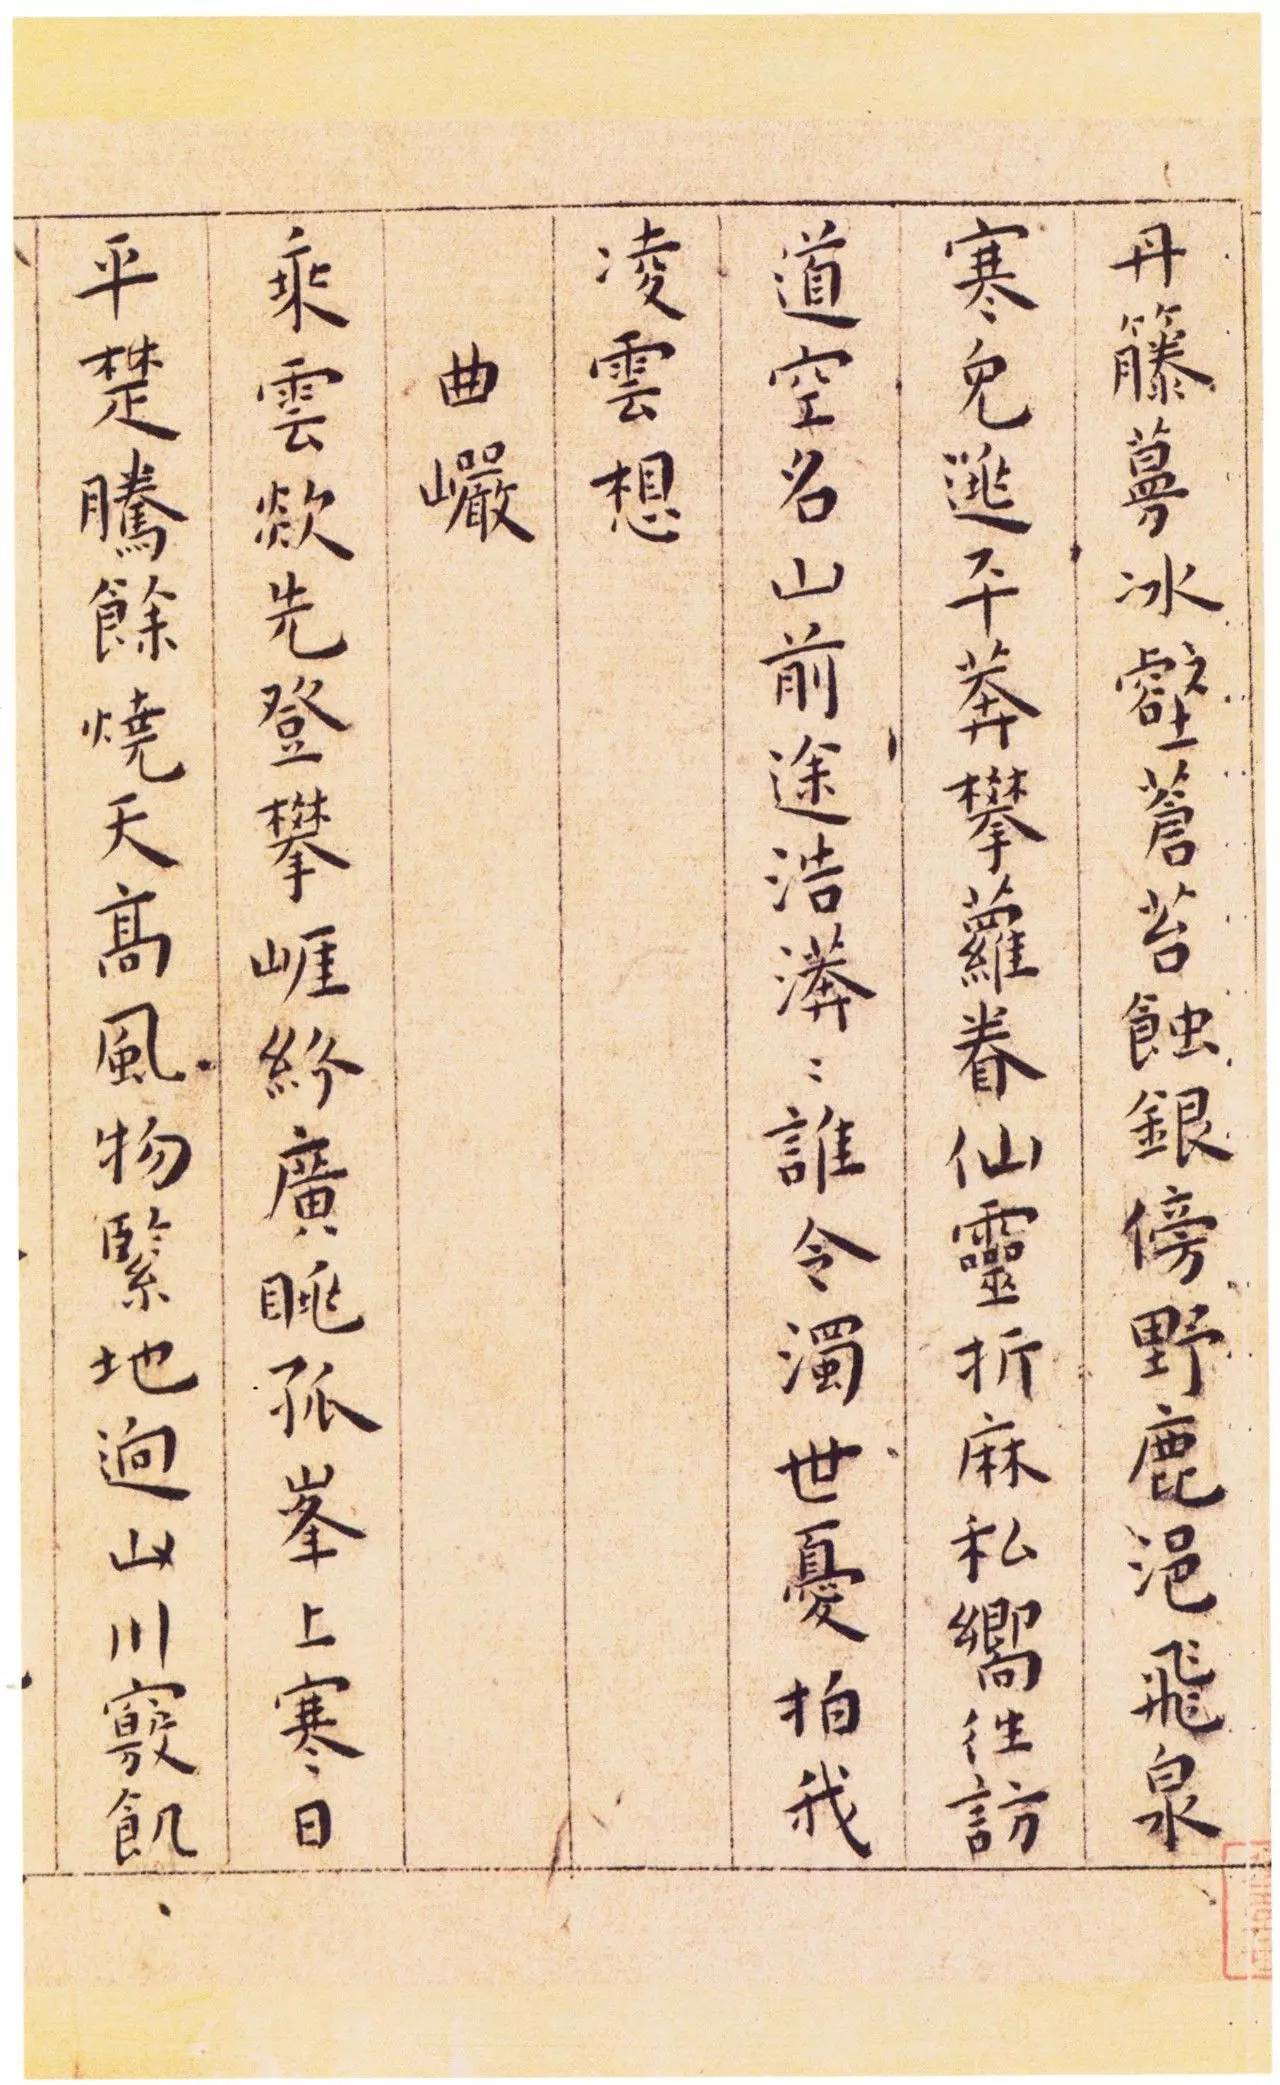 丹籐蔓冰壑蒼苔蝕銀傍野鹿浥飛泉
寒兔逃平莽攀蘿眷仙靈折麻私嚮往訪
道空名山前途浩漭〻誰令濁世憂拍我
凌雲想
曲巖
乘雲欻先登攀崕紛廣眺孤峯上寒日
平楚騰餘燒天高風物緊地迥山川竅飢